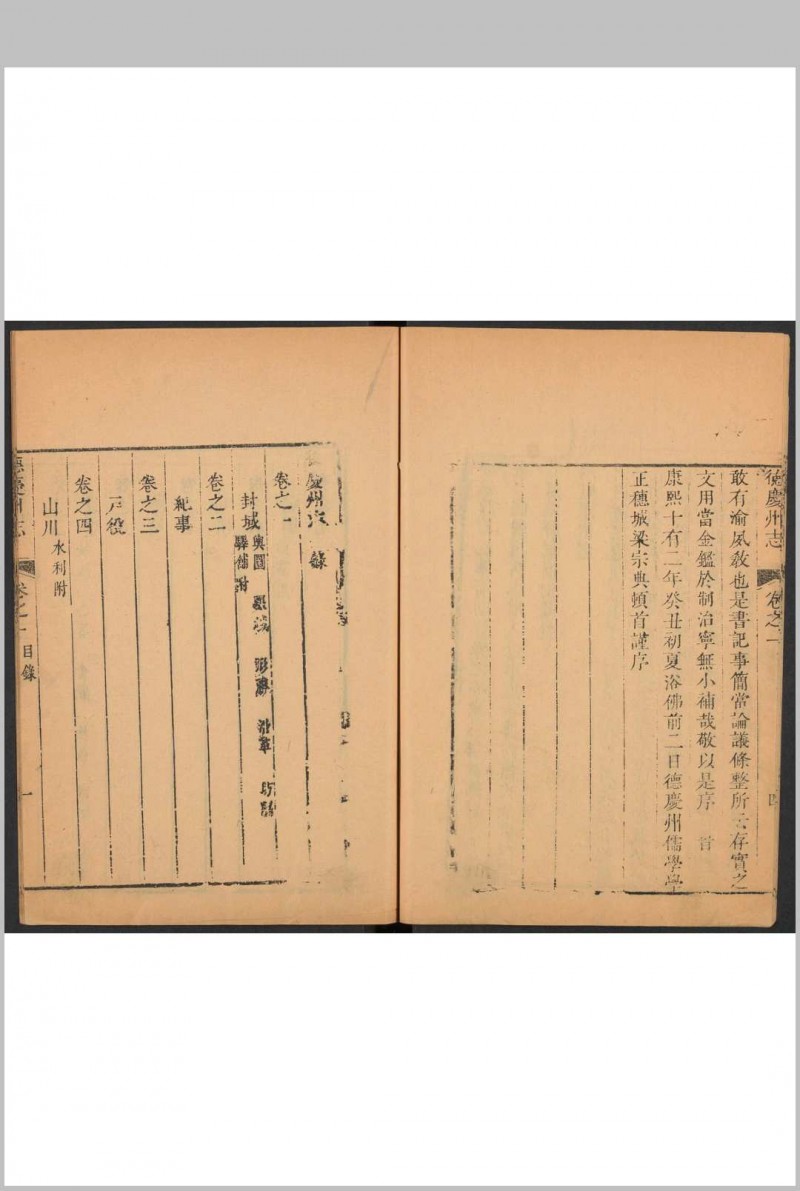 德慶州志 卷之一 四
敢有渝風敎也是書記事簡當論議條整所云存實之
文用當金鑑於制治寧無小補哉敬以是序 旹
康熙十有二年癸丑初夏浴佛前二日德慶州儒學學
正穗城梁宗典頓首謹序
慶州 目錄
卷之一
封域 輿圖 星域 形勝 沿革 坊都
驛舖附
卷之二
紀事
卷之三
戸役
卷之四
山川 水利附
德慶州志 卷之一 目錄 一